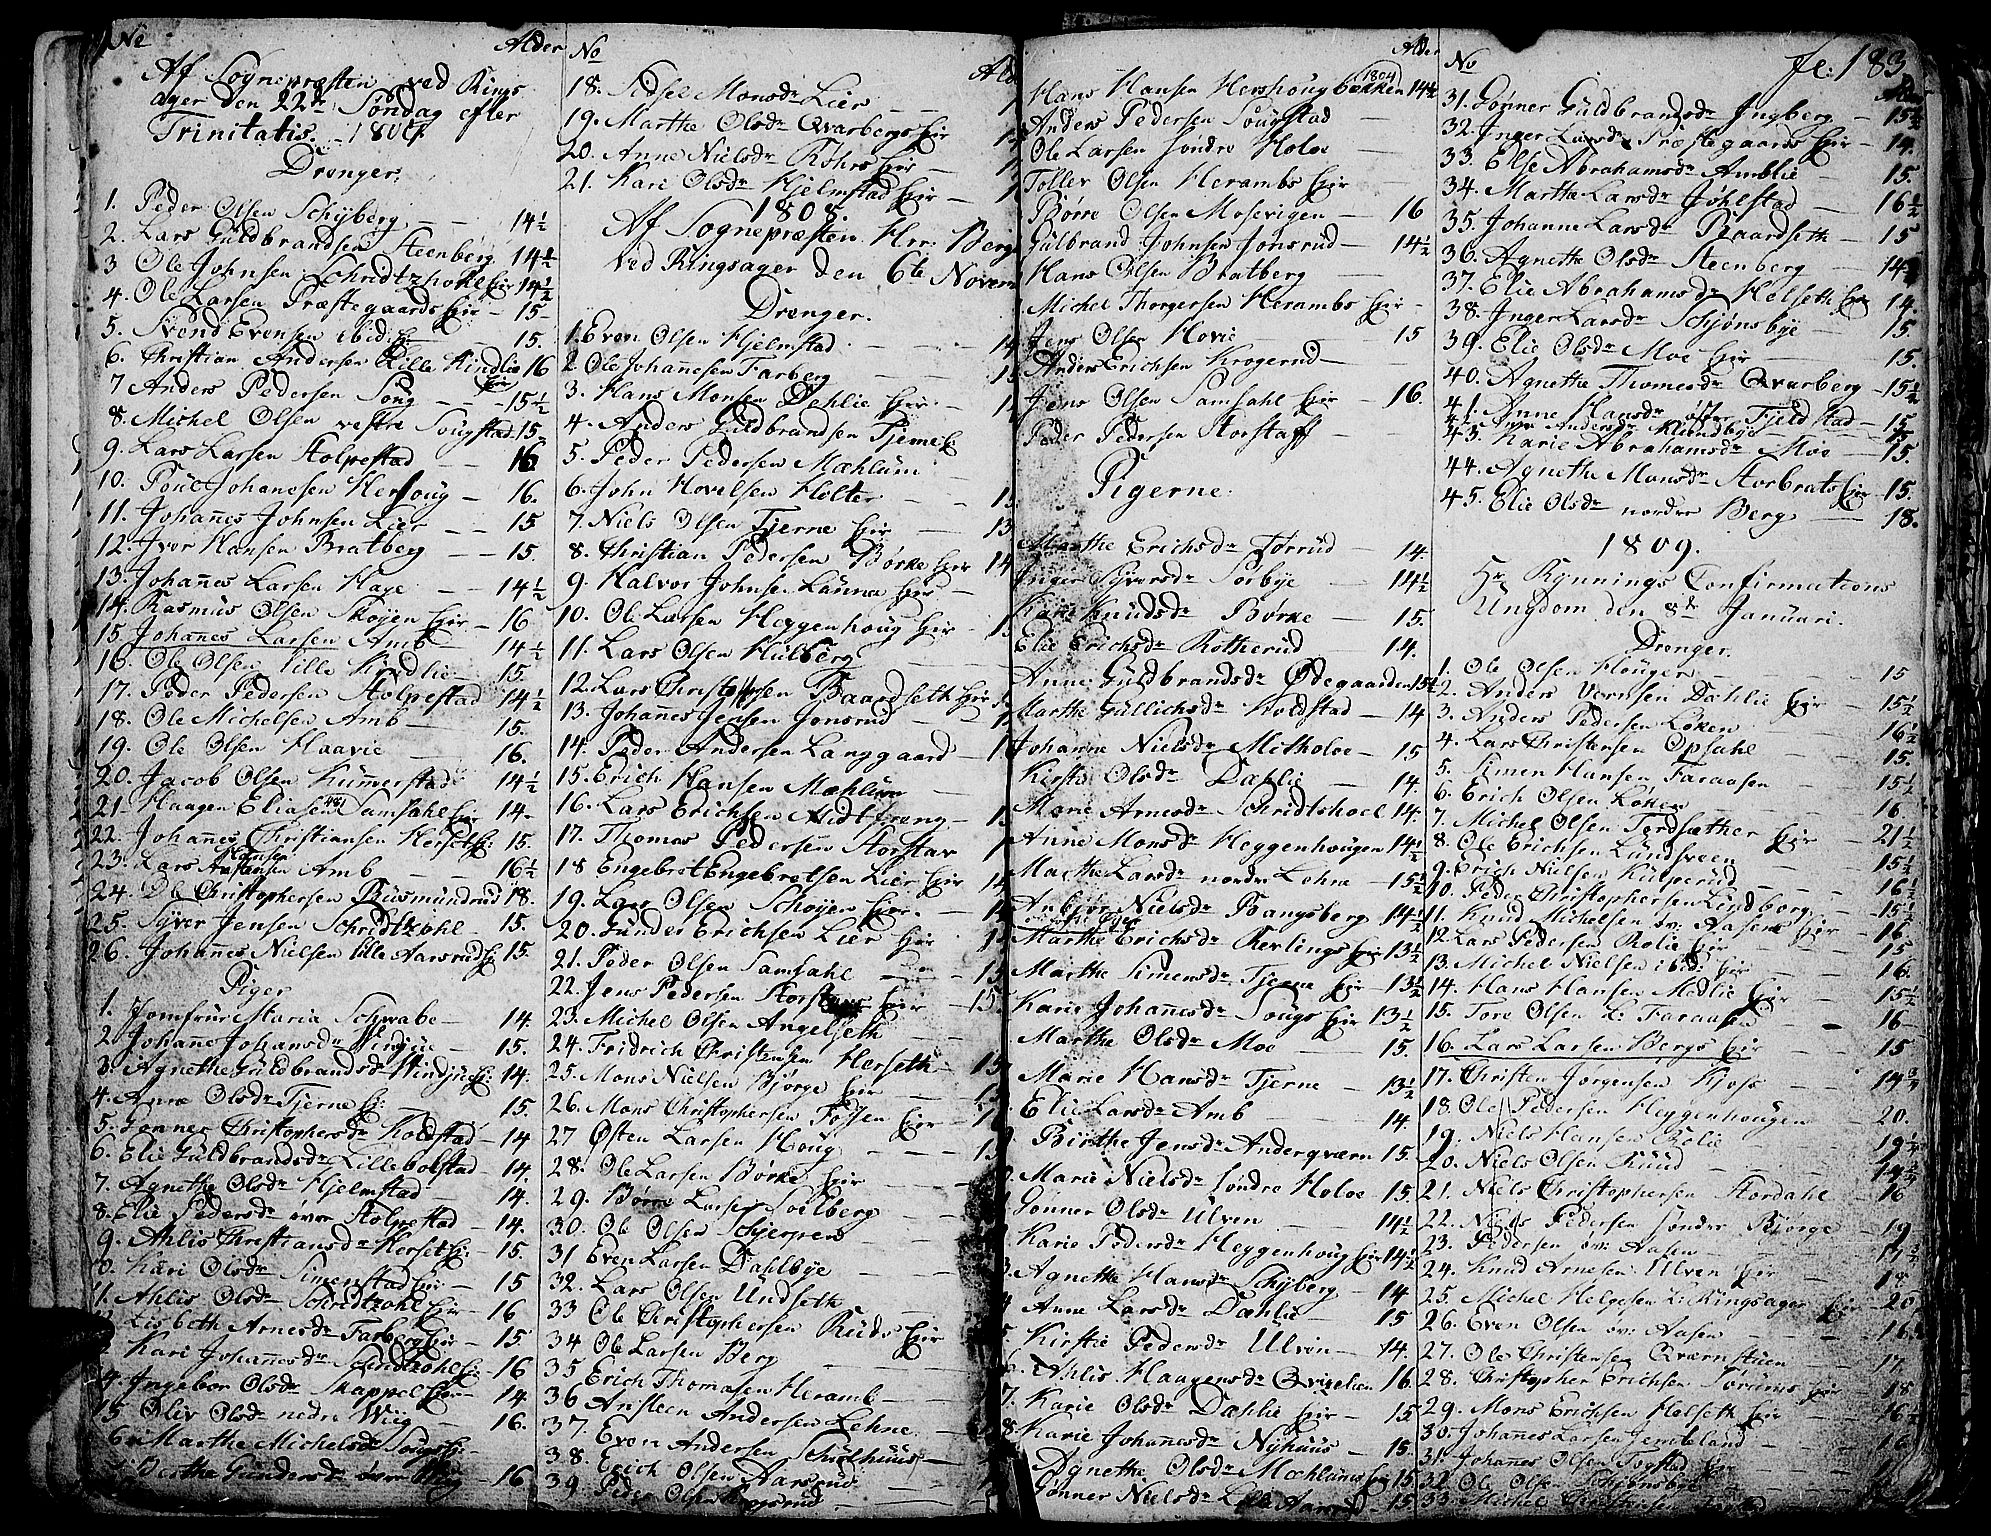 No Alder
Af Sognepræsten ved Rings
ager den 22de Søndag efter
Trinitatis 1807
Drenger.
1. Peder Olsen Schyberg — 14½
2. Lars Guldbrandsen Steenberg 14½
3 Ole Johnsen Schridtzhohl Eie 14½
4. Ole Larsen Præstegaards Eie — 15
5. Svend Evensen ibid: — 15.
6. Christian Andersen Lille Kindlie 16
7 Anders Pedersen Soug — 15½
8. Michel Olsen vestre Sougstad 15
9. Lars Larsen Stolpestad — 16
10. Poul Johannesen Hersoug — 16.
11. Johannes Johnsen Lier — 15
12. Iver Hansen Bratberg — 15.
13. Johannes Larsen Hage — 14½
14. Rasmus Olsen Skøyen Eie — 16
15. Johannes Larsen Amb — 14½
16. Ole Olsen Lille Kindlie — 15.
17. Peder Pedersen Stolpestad 14½
18. Ole Michelsen Amb — 15.
19. Ole Olsen Haavie — 16.
20. Jacob Olsen Kummerstad 14½
21. Haagen Eliasen Samsahl Eie 14.
22. Johannes Christiansen Herset E: 15.
23. Lars Hansen Amb — 16½
24. Ole Christophersen Busmundrud 18.
25. Syver Jensen Schridtzhohl — 15.
26. Johannes Nielsen Lille Aarsrud E 15.
Piger
1. Jomfrue Maria Schwabe — 14.
2 Johane Johansdr Windju — 15.
3. Agnethe Guldbrandsdr Windju E: 14.
4. Anne Olsdr Tjerne E: 15.
5. Gønner Christophersdr Koldstad 14
6. Elie Guldbrandsdr Lillebolstad 14.
7. Agnethe Olsdr Hjelmstad — 14.
8. Elie Pedersdr over Stolpestad — 14.
9. Ahlis Christiansdr Herset Eie 15.
10. Kari Olsdr Simenstad Eie — 15
11. Ahlis Olsdr Schridtzhohl Eie — 16
12 Lisbeth Arnesdr Farberg Eie — 15
13 Kari Johannesdr Schridtzhohl E 16
14. Ingebor Olsdr Skappel Eie — 14.
15 Oliv Olsdr nedre Wiig — 16.
16 Marthe Michelsdr Sougs E:
17. Berthe Gundersdr øvre Berg 16
No Ald
18. Sidsel Monsdr Lier —
19. Marthe Olsdr Qvarbergs Eie
20. Anne Nielsdr Rohrs Eie —
21. Kari Olsdr Hjelmstad Eie —
1808.
Af Sognepræsten Hr: Berg
ved Ringsager den 6te Novem
Drenger.
1. Even Olsen Hjelmstad —
2 Ole Johannesen Farberg
3. Hans Monsen Dehlie Eie —
4. Anders Guldbrandsen Tjerne E
5. Peder Pedersen Mæhlum
6. John Hovelsen Holter —
7. Niels Olsen Tjerne Eie —
8. Christian Pedersen Børke Eie
9. Halvor Johnsen Lunna Eie —
10. Ole Larsen Heggenhoug Eie —
11. Lars Olsen Hulberg
12. Lars Christophersen Baardseth Eie
13. Johannes Jensen Jonsrud —
14. Peder Andersen Langgaard —
15. Erich Hansen Mæhlum —
16. Lars Erichsen Midtfreng —
17. Thomas Pedersen Storstav
18 Engebret Engebretsen Lier Eie
19. Lars Olsen Schoyen Eie —
20. Gunder Erichsen Lier Eie
21. Peder Olsen Samsahl —
22. Jens Pedersen Eie — 15
23. Michel Olsen Angelseth
24. Fridrich Christensen Herseth — 15
25. Mons Nielsen Bjørge Eie —
26. Mons Christophersen Fossen Eie —
27 Østen Larsen Houg —
28. Ole Larsen Børke Eie —
29. Børre Larsen Solberg —
30. Ole Olsen Schjerpen
31 Even Larsen Dahlbye —
32. Lars Olsen Undseth
33 Ole Christophersen Ruds Eie
34 Ole Larsen Berg —
35 Erich Thomasen Heramb —
36 Aristeen Andersen Lehne
37. Even Andersen Schulhuus
38. Erich Olsen Aarsrud
39 Peder Olsen
Alder
Hans Hansen Hershougbakken 1804 14½
Anders Pedersen Sougstad —
Ole Larsen Søndre Holoe —
Toller Olsen Herambs Eie —
Børre Olsen Mosevigen — 16
Gulbrand Johnsen Jonsrud — 14½
Hans Olsen Bratberg —
Michel Thorgersen Herambs Eie —
Jens Olsen Hovie — 15
Anders Erichsen Krogerud —
Jens Olsen Samsahl Eie — 16.
Peder Pedersen Storstaff —
Pigerne:
Marthe Erichsdr Torrud — 14.
Inger Syversdr Sorbye — 14½
Karie Knudsdr Børke — 15.
Elie Erichsdr Rotherud 14.
Anne Guldbrandsdr Ødegaarden 15½
Marthe Gullichsdr Koldstad — 14
Johanne Nielsdr Mitholoe — 15
Kirstie Olsdr Dæhlie — 14.
Marie Arnesdr Schridtshoel 14.
Anne Monsdr Heggenhougen 14½
Marthe Larsdr nordre Lehne — 15½
Anbior Nielsdr Bangsberg 14½
Marthe Erichsdr Kevlings Eie 13½
Marthe Simensdr Tjerne Eie — 13½
Karie Johannesdr Sougs Eie 13½
Marthe Olsdr Moe — 15.
Marie Hansdr Tjerne — 13½
Elie Larsdr Amb — 14.
Birthe Jensdr Anderqværn 15.
Marie Nielsdr Søndre Holoe 15.
Gønner Olsdr Ulven — 14½
Karie Pedersdr Heggenhoug Eie 14½
Agnethe Hansdr Schyberg — 14
Anne Larsdr Dæhlie — 15
Kirstie Pedersdr Ulven — 14.
Ahlis Haagensdr 16.
Karie Olsdr Dæhlie Eie — 15
Karie Johannesdr Nyhuus — 15.
Agnethe Olsdr Mæhlums Eie 15
Gønner Nielsdr Lille Aarsrud — 15
No fl: 183
31. Gønner Guldbrandsdr Ingberg — 15½
32. Inger Larsdr Præstegaards Eie — 14.
33. Else Abrahamsdr Amblie — 15
34. Marthe Larsdr Jøhlstad — 16½
35. Johanne Larsdr Baardseth — 15
36. Agnethe Olsdr Steenberg — 14½
37. Elie Abrahamsdr Helseth Eie 14.
38. Inger Larsdr Schjønsbye — 15
39. Elie Olsdr Moe Eie — 15.
40. Agnethe Thomesdr Qvarberg — 15½
41. Anne Hansdr øster Tjeldstad — 15
42. Andersdr
43. Karie Abrahamsdr Moe — 15.
44. Agnethe Monsdr Storbrats Eie 15.
45. Elie Olsdr nordre Berg — 18.
1809.
Hr Rynnings Confirmations
Ungdom den 8de Januari.
Drenger.
1. Ole Olsen Houger — 15
2. Anders Dæhlie Eie — 15½
3. Anders Pedersen Løken — 16½
4. Lars Christensen Opsahl — 15.
5. Simen Hansen Faraasen — 15½
6. Erich Olsen Løken — 16
7. Michel Olsen Tordsæther Eie — 21½
8. Ole Erichsen Lundsveen — 15½
9. Erich Nielsen Kusperud — 16½
10. Peder Christophersen Lindborg — 15½
11. Knud Michelsen øv: Aasens Eie — 16
12 Lars Pedersen Bolie Eie — 15
13. Michel Nielsen ibid: Eie — 16.
14. Hans Hansen Medlie Eie — 15½
15. Tore Olsen L: Faraasen — 16
16. Lars Larsen Bergs Eie — 15
17. Christen Jørgensen Kjoss — 14¾
18. Ole Pedersen Heggenhougen — 20.
19. Niels Hansen Bolie — 19½
20. Niels Olsen Ruud — 14½
21. Niels Christophersen Stordahl — 16
22. Niels Pedersen sønder Bjørge — 19
23. Pedersen øv: Aasen — 17½
24. Knud Arnesen Ulven Eie — 18
25. Michel Helgesen L: Ringsager Eie 20
26. Even Olsen øv: Aasen — 16½
27. Ole Christensen Qværnstuen — 17
28. Christopher Erichsen Tørums Eie 18
29. Mons Erichsen Helseth Eie — 16½
30. Johannes Larsen Jemteland — 16
31. Johannes Olsen Sogstad Eie
32. Ole Olsen Schjønsbye
33. Michel